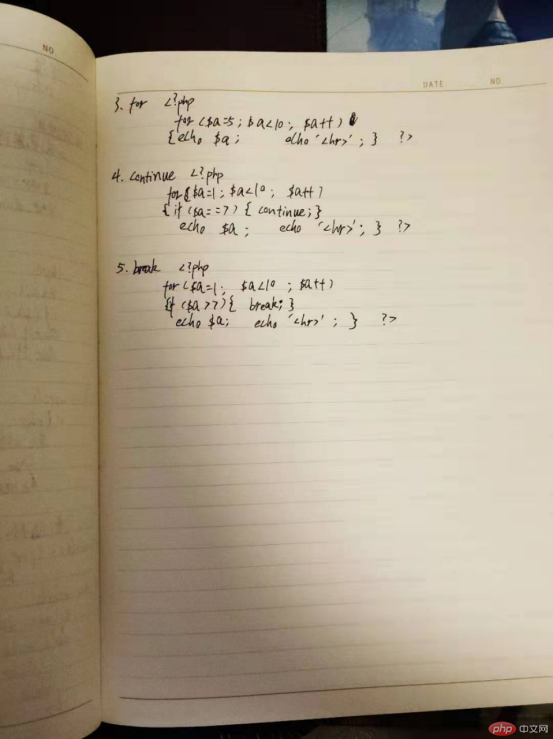 NO.
DATE NO.
3. for <?php
for ($a=5; $a<10; $a++)
{echo $a; echo '<hr>'; } ?>
4. continue <?php
for($a=1; $a<10; $a++)
{if ($a==7) { continue;}
echo $a; echo '<hr>'; } ?>
5. break <?php
for ($a=1; $a<10; $a++)
{if ($a>7){ break; }
echo $a; echo '<hr>'; } ?>
php 中文网